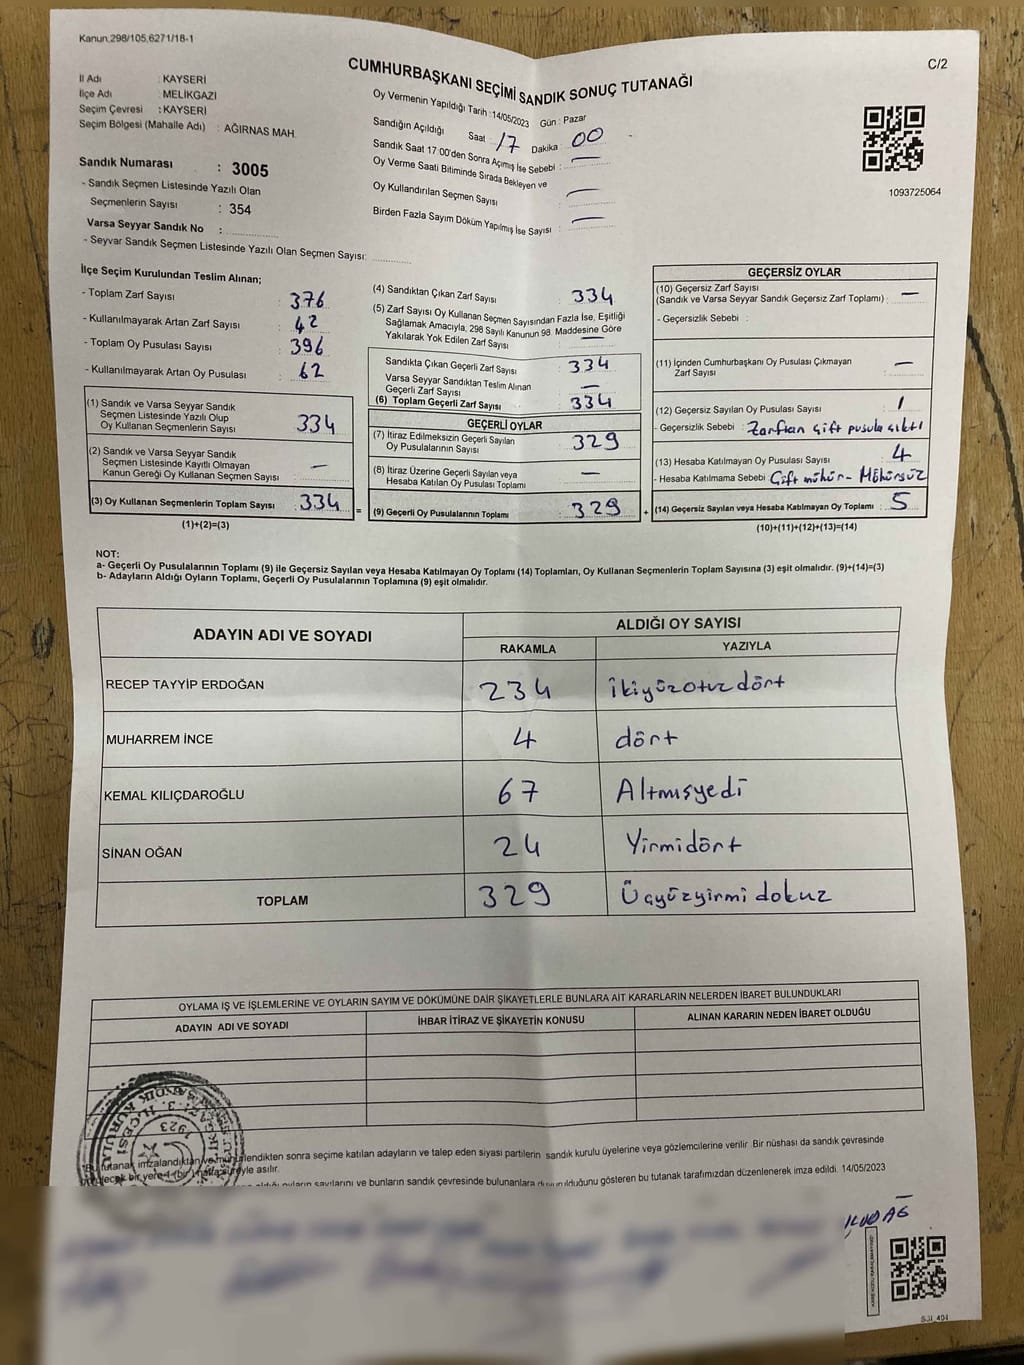 Kanun.298/105,6271/18-1
C/2
CUMHURBAŞKANI SEÇİMİ SANDIK SONUÇ TUTANAĞI
İl Adı : KAYSERİ
İlçe Adı : MELİKGAZİ
Seçim Çevresi : KAYSERİ
Seçim Bölgesi (Mahalle Adı) : AĞIRNAS MAH.
Sandık Numarası : 3005
- Sandık Seçmen Listesinde Yazılı Olan
Seçmenlerin Sayısı : 354
Varsa Seyyar Sandık No :
- Seyvar Sandık Seçmen Listesinde Yazılı Olan Seçmen Sayısı:
Oy Vermenin Yapıldığı Tarih :14/05/2023 Gün : Pazar
Sandığın Açıldığı Saat 17 Dakika : 00
Sandık Saat 17:00'den Sonra Açımış İse Sebebi : —
Oy Verme Saati Bitiminde Sırada Bekleyen ve
Oy Kullandırılan Seçmen Sayısı : —
Birden Fazla Sayım Döküm Yapılmış İse Sayısı : —
1093725064
İlçe Seçim Kurulundan Teslim Alınan;
- Toplam Zarf Sayısı : 376
- Kullanılmayarak Artan Zarf Sayısı : 42
- Toplam Oy Pusulası Sayısı : 396
- Kullanılmayarak Artan Oy Pusulası : 62
(1) Sandık ve Varsa Seyyar Sandık
Seçmen Listesinde Yazılı Olup
Oy Kullanan Seçmenlerin Sayısı : 334
(2) Sandık ve Varsa Seyyar Sandık
Seçmen Listesinde Kayıtlı Olmayan
Kanun Gereği Oy Kullanan Seçmen Sayısı : —
(3) Oy Kullanan Seçmenlerin Toplam Sayısı : 334
(1)+(2)=(3)
=
(4) Sandıktan Çıkan Zarf Sayısı : 334
(5) Zarf Sayısı Oy Kullanan Seçmen Sayısından Fazla İse, Eşitliği
Sağlamak Amacıyla, 298 Sayılı Kanunun 98. Maddesine Göre
Yakılarak Yok Edilen Zarf Sayısı : —
Sandıkta Çıkan Geçerli Zarf Sayısı : 334
Varsa Seyyar Sandıktan Teslim Alınan
Geçerli Zarf Sayısı : —
(6) Toplam Geçerli Zarf Sayısı : 334
GEÇERLİ OYLAR
(7) İtiraz Edilmeksizin Geçerli Sayılan
Oy Pusulalarının Sayısı : 329
(8) İtiraz Üzerine Geçerli Sayılan veya
Hesaba Katılan Oy Pusulası Toplamı : —
(9) Geçerli Oy Pusulalarının Toplamı : 329
+
GEÇERSİZ OYLAR
(10) Geçersiz Zarf Sayısı
(Sandık ve Varsa Seyyar Sandık Geçersiz Zarf Toplamı) : —
- Geçersizlik Sebebi :
(11) İçinden Cumhurbaşkanı Oy Pusulası Çıkmayan
Zarf Sayısı : —
(12) Geçersiz Sayılan Oy Pusulası Sayısı : 1
- Geçersizlik Sebebi : Zarftan çift pusula çıktı
(13) Hesaba Katılmayan Oy Pusulası Sayısı : 4
- Hesaba Katılmama Sebebi : Çift mühür - Mühürsüz
(14) Geçersiz Sayılan veya Hesaba Katılmayan Oy Toplamı : 5
(10)+(11)+(12)+(13)=(14)
NOT:
a- Geçerli Oy Pusulalarının Toplamı (9) ile Geçersiz Sayılan veya Hesaba Katılmayan Oy Toplamı (14) Toplamları, Oy Kullanan Seçmenlerin Toplam Sayısına (3) eşit olmalıdır. (9)+(14)=(3)
b- Adayların Aldığı Oyların Toplamı, Geçerli Oy Pusulalarının Toplamına (9) eşit olmalıdır.
ADAYIN ADI VE SOYADI
ALDIĞI OY SAYISI
RAKAMLA YAZIYLA
RECEP TAYYİP ERDOĞAN 234 ikiyüzotuzdört
MUHARREM İNCE 4 dört
KEMAL KILIÇDAROĞLU 67 Altmışyedi
SİNAN OĞAN 24 Yirmidört
TOPLAM 329 Üçyüzyirmidokuz
OYLAMA İŞ VE İŞLEMLERİNE VE OYLARIN SAYIM VE DÖKÜMÜNE DAİR ŞİKAYETLERLE BUNLARA AİT KARARLARIN NELERDEN İBARET BULUNDUKLARI
ADAYIN ADI VE SOYADI İHBAR İTİRAZ VE ŞİKAYETİN KONUSU ALINAN KARARIN NEDEN İBARET OLDUĞU
1923
Bu tutanak imzalandıktan ve mühürlendikten sonra seçime katılan adayların ve talep eden siyasi partilerin sandık kurulu üyelerine veya gözlemcilerine verilir. Bir nüshası da sandık çevresinde
bir yere 1 (bir) hafta süreyle asılır.
oyların sayılarını ve bunların sandık çevresinde bulunanlara duyurulduğunu gösteren bu tutanak tarafımızdan düzenlenerek imza edildi. 14/05/2023
SJI_404